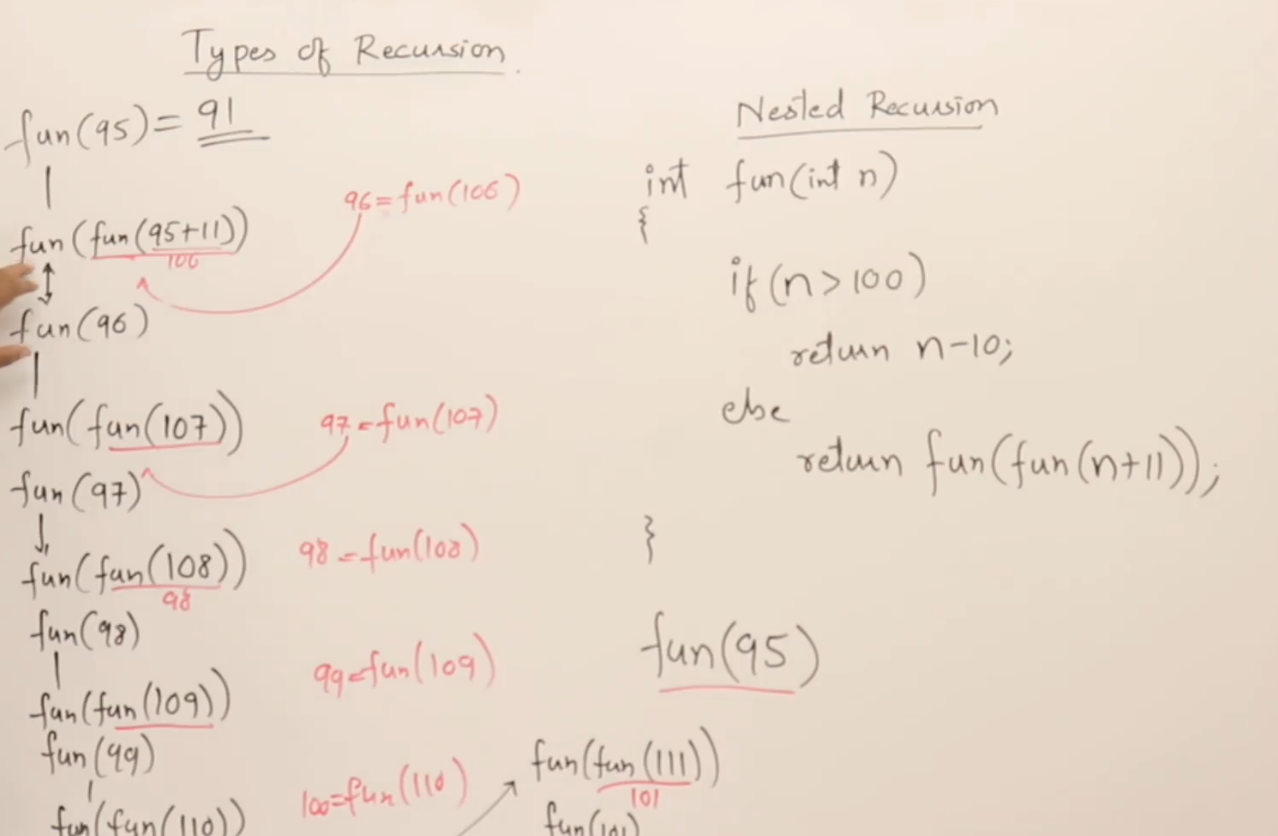 Types of Recursion.
fun(95) = 91
fun(fun(95+11))
106
96=fun(106)
fun(96)
fun(fun(107))
97=fun(107)
fun(97)
fun(fun(108))
98
98=fun(108)
fun(98)
fun(fun(109))
99=fun(109)
fun(99)
fun(fun(110))
100=fun(110)
Nested Recursion
int fun(int n)
{
if(n>100)
return n-10;
else
return fun(fun(n+11));
}
fun(95)
fun(fun(111))
101
fun(101)